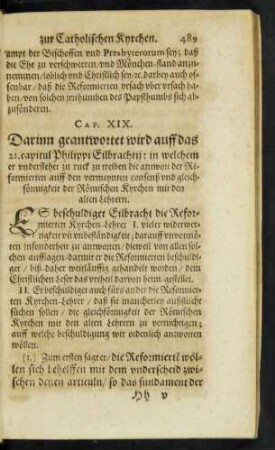 zur Catholischen Kyrchen. 489
ampt der Bischoffen vnd Presbyterorum sey; daß
die Ehe zu verschweren vnd München-stand anzu-
nemmen/löblich vnd Christlich sey/ec. darbey auch of-
fenbar/ daß die Reformierten vrsach vber vrsach ha-
ben/von solchen jrrthumben des Papsthumbs sich ab-
zusönderen.
CAP. XIX.
Darinn geantwortet wird auff das
21. capitul Philippi Eilbrachtij: in welchem
er vndersteht zu ruck zu treiben die antwort der Re-
formierten auff den vermeynten consensz vnd gleich-
förmigkeit der Römischen Kyrchen mit den
alten Lehrern.
ES beschuldiget Eilbracht die Refor-
mierten Kyrchen-Lehrer I. vieler widerwer-
tigkeit vñ vnbeständigkeit; darauff vnvonnö-
ten insonderheit zu antworten; dieweil von allen sol-
chen aufflagen/darmit er die Reformierten beschuldi-
get/ biß-daher weitläuffig gehandelt worden/ dem
Christlichen Leser das vrtheil darvon heim-gestellet.
II. Er beschuldiget auch fürs ander die Reformier-
ten Kyrchen-Lehrer/ daß sie mancherley außflücht
süchen sollen/ die gleichförmigkeit der Römischen
Kyrchen mit den alten Lehrern zu vernichtigen;
auff welche beschuldigung wir ordenlich antworten
wöllen.
[1.] Zum ersten sagt er/ die Reformiertē wöl-
len sich behelffen mit dem vnderscheid zwi-
schen denen articuln/ so das fundament der
Hh v